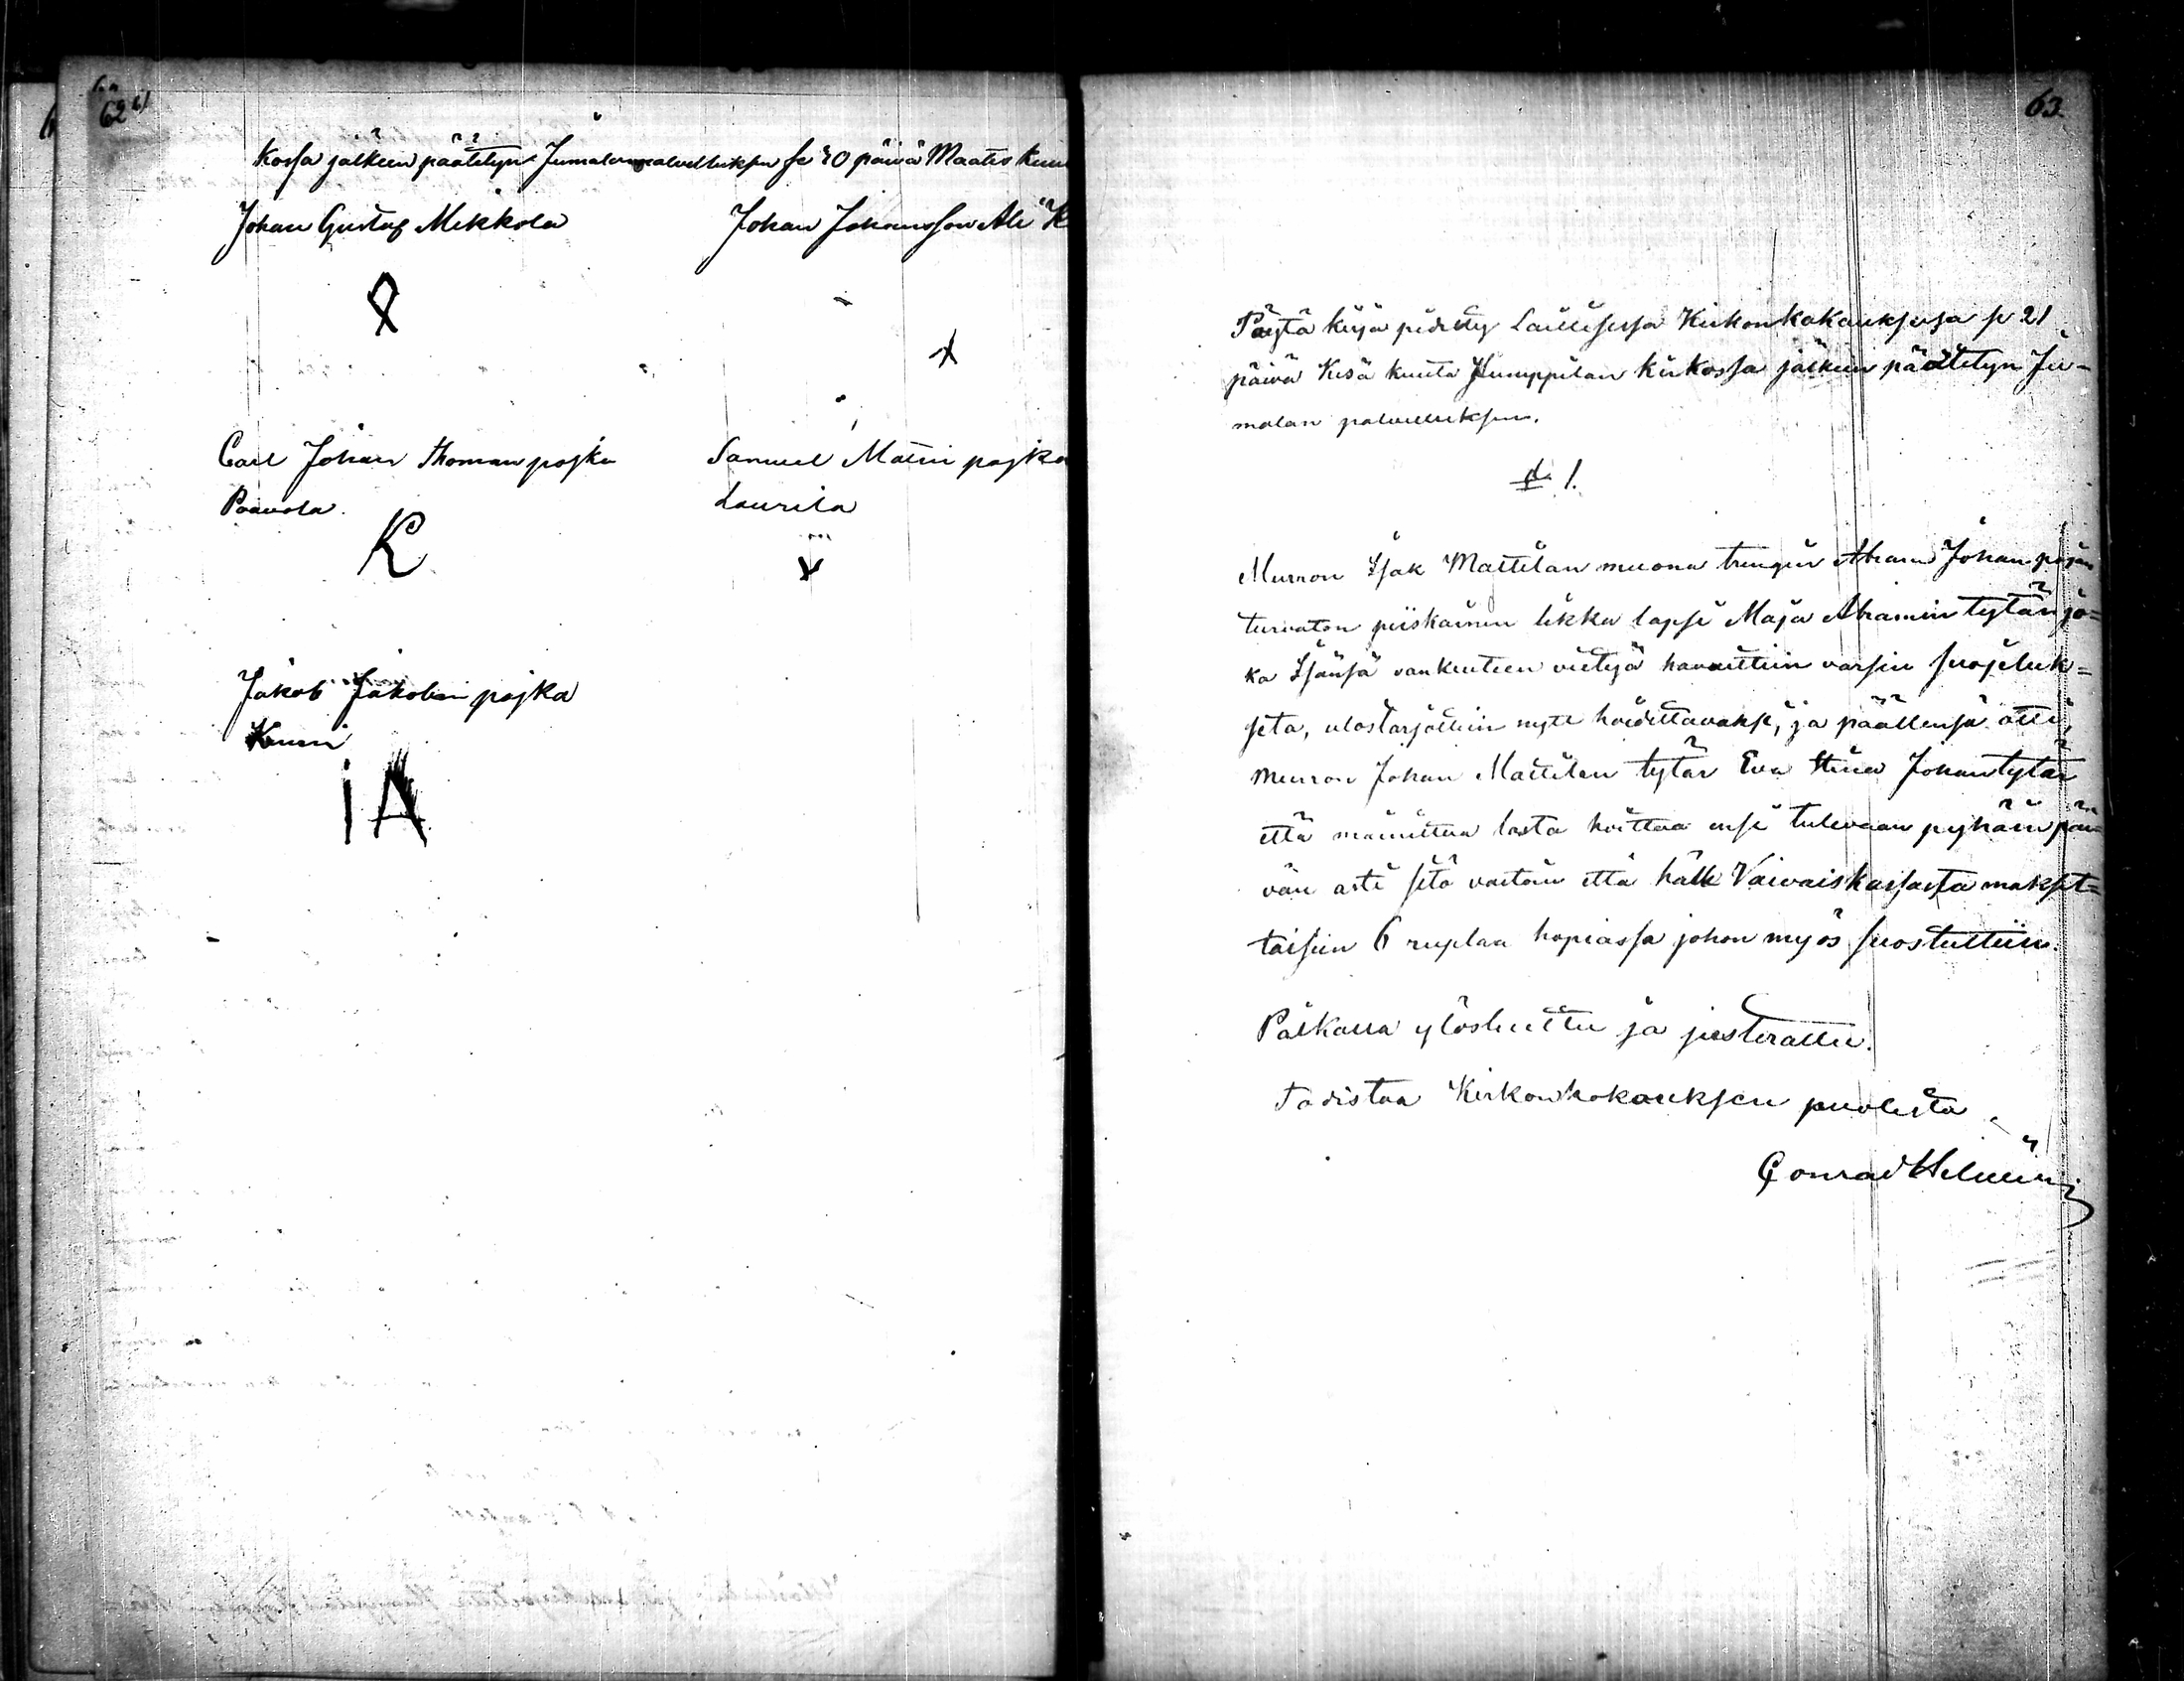 62
kossa jälkeen päätetyn Jumalanpalvelluksen se 30 päivä Maalis kuu
Johan Gustaf Mikkola
Johan Johansson Ali K
Carl Johan Thoman pojka
Paavola.
Samuel Matin pojka
Laurila
K
Jakob Jakobin pojka
IA
63.
Pöytä kirja pidetty Laillisessa Kirkonkokouksessa se 21
päivä Kesä kuuta Humppilan kirkossa jälkeen päätetyn Ju-
malan palvelluksen.
§. 1.
Murron Isak Mattilan muona trengin Abram Johan pojan
turvaton piskainen likka lapsi Maja Abramin tytär jo-
ka Isänsä vankeuteen vietyä havaittiin varsin suojeluk-
seta, ulostarjottiin nytt hoidettavaksi, ja päällensä otti
Murron Johan Mattilan tytär Eva Stina Johan tytär
että mainittua lasta hoittaa ensi tulevaan pyhäin päi-
vän asti sitä vastoin että hälle Vaivaiskassasta makset-
taisiin 6 ruplaa hopiassa johon myös suostuttiin.
Paikalla ylösluettu ja justerattu.
Todistaa Kirkonkokouksen puolesta
Conrad Helenius